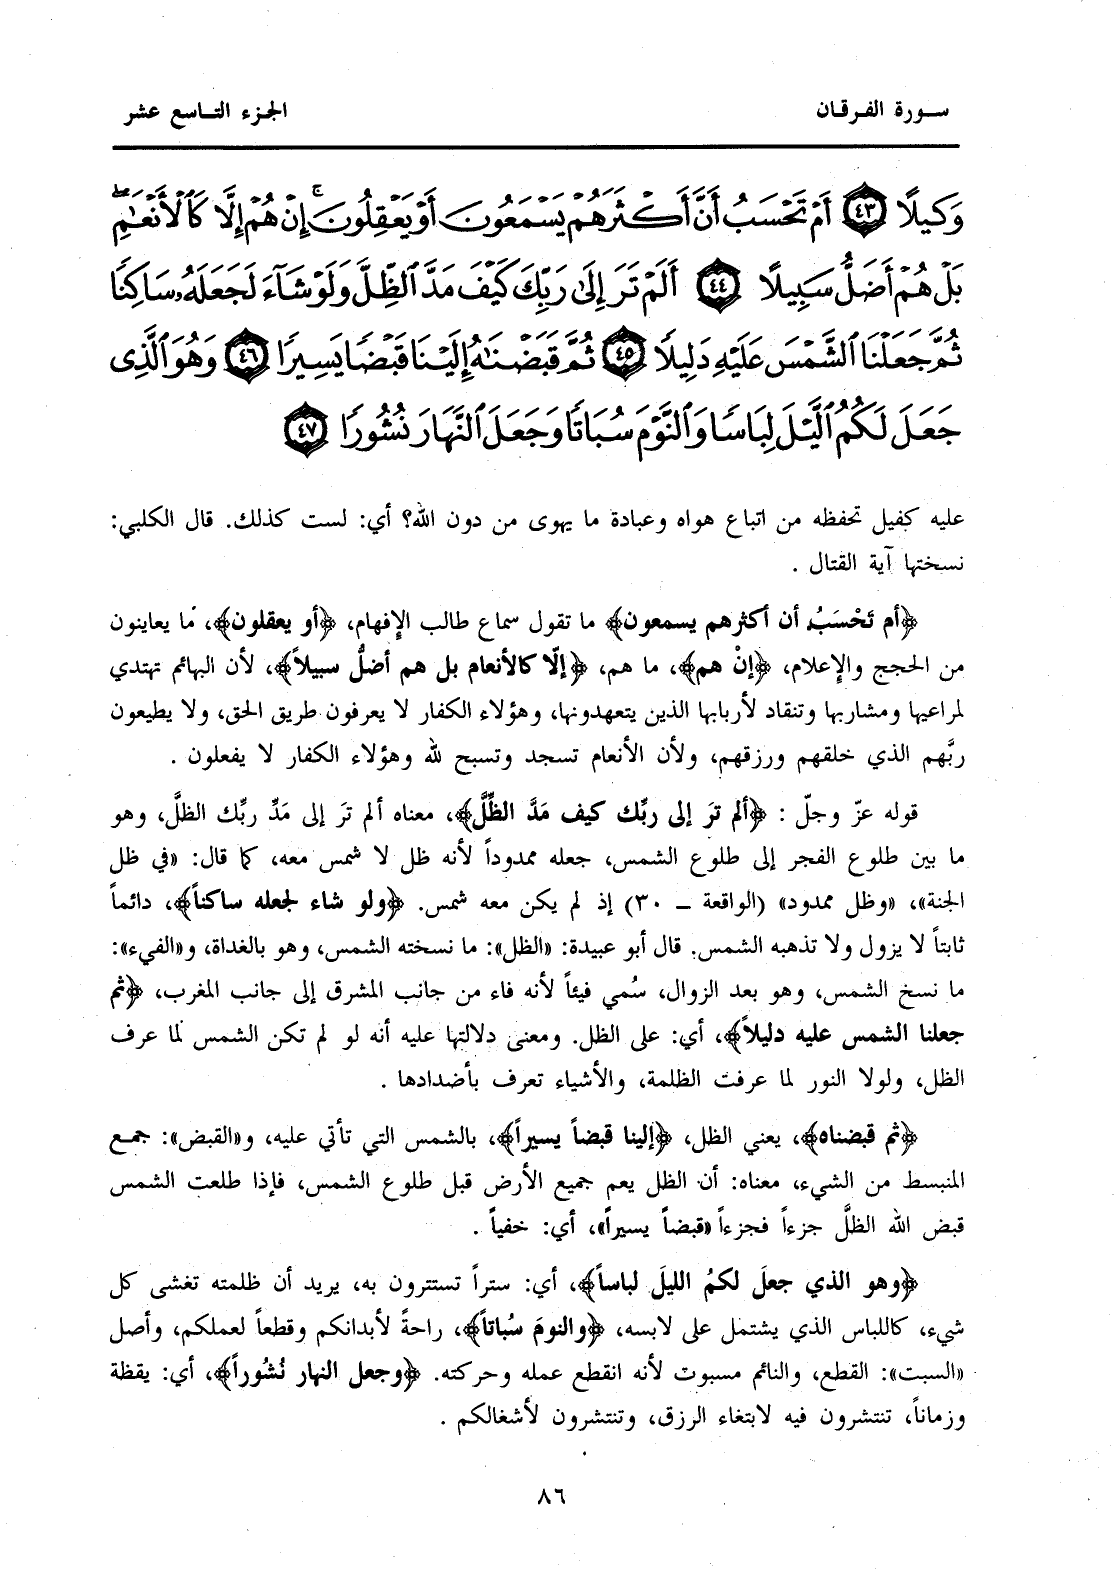 سورة الفرقان
الجزء التاسع عشر
وَكِيلًا ٤٣ أَمْ تَحْسَبُ أَنَّ أَكْثَرَهُمْ يَسْمَعُونَ أَوْ يَعْقِلُونَ ۚ إِنْ هُمْ إِلَّا كَالْأَنْعَٰمِ ۖ
بَلْ هُمْ أَضَلُّ سَبِيلًا ٤٤ أَلَمْ تَرَ إِلَىٰ رَبِّكَ كَيْفَ مَدَّ ٱلظِّلَّ وَلَوْ شَآءَ لَجَعَلَهُۥ سَاكِنًا
ثُمَّ جَعَلْنَا ٱلشَّمْسَ عَلَيْهِ دَلِيلًا ٤٥ ثُمَّ قَبَضْنَٰهُ إِلَيْنَا قَبْضًا يَسِيرًا ٤٦ وَهُوَ ٱلَّذِى
جَعَلَ لَكُمُ ٱلَّيْلَ لِبَاسًا وَٱلنَّوْمَ سُبَاتًا وَجَعَلَ ٱلنَّهَارَ نُشُورًا ٤٧
عليه كفيل تحفظه من اتباع هواه وعبادة ما يهوى من دون الله؟ أي: لست كذلك. قال الكلبي:
نسختها آية القتال .
﴿أم تَحْسَبُ أن أكثرهم يسمعون﴾ ما تقول سماع طالب الإفهام، ﴿أو يعقلون﴾، ما يعاينون
من الحجج والإعلام، ﴿إنْ هم﴾، ما هم، ﴿إلّا كالأنعام بل هم أضلُّ سبيلاً﴾، لأن البهائم تهتدي
لمراعيها ومشاربها وتنقاد لأربابها الذين يتعهدونها، وهؤلاء الكفار لا يعرفون طريق الحق، ولا يطيعون
ربَّهم الذي خلقهم ورزقهم، ولأن الأنعام تسجد وتسبح لله وهؤلاء الكفار لا يفعلون .
قوله عزّ وجلّ : ﴿ألم ترَ إلى ربِّك كيف مَدَّ الظِّلَّ﴾، معناه ألم ترَ إلى مَدِّ ربِّك الظلَّ، وهو
ما بين طلوع الفجر إلى طلوع الشمس، جعله ممدوداً لأنه ظل لا شمس معه، كما قال: «في ظل
الجنة»، «وظل ممدود» (الواقعة ــ ٣٠) إذ لم يكن معه شمس. ﴿ولو شاء لجعله ساكناً﴾، دائماً
ثابتاً لا يزول ولا تذهبه الشمس. قال أبو عبيدة: «الظل»: ما نسخته الشمس، وهو بالغداة، و«الفيء»:
ما نسخ الشمس، وهو بعد الزوال، سُمي فيئاً لأنه فاء من جانب المشرق إلى جانب المغرب، ﴿ثم
جعلنا الشمس عليه دليلاً﴾، أي: على الظل. ومعنى دلالتها عليه أنه لو لم تكن الشمس لما عرف
الظل، ولولا النور لما عرفت الظلمة، والأشياء تعرف بأضدادها .
﴿ثم قبضناه﴾، يعني الظل، ﴿إلينا قبضاً يسيراً﴾، بالشمس التي تأتي عليه، و«القبض»: جمع
المنبسط من الشيء، معناه: أن الظل يعم جميع الأرض قبل طلوع الشمس، فإذا طلعت الشمس
قبض الله الظلَّ جزءاً فجزءاً «قبضاً يسيراً»، أي: خفياً .
﴿وهو الذي جعلَ لكمُ الليلَ لباساً﴾، أي: ستراً تستترون به، يريد أن ظلمته تغشى كل
شيء، كاللباس الذي يشتمل على لابسه، ﴿والنومَ سُباتاً﴾، راحةً لأبدانكم وقطعاً لعملكم، وأصل
«السبت»: القطع، والنائم مسبوت لأنه انقطع عمله وحركته. ﴿وجعل النهار نُشُوراً﴾، أي: يقظة
وزماناً، تنتشرون فيه لابتغاء الرزق، وتنتشرون لأشغالكم .
٨٦